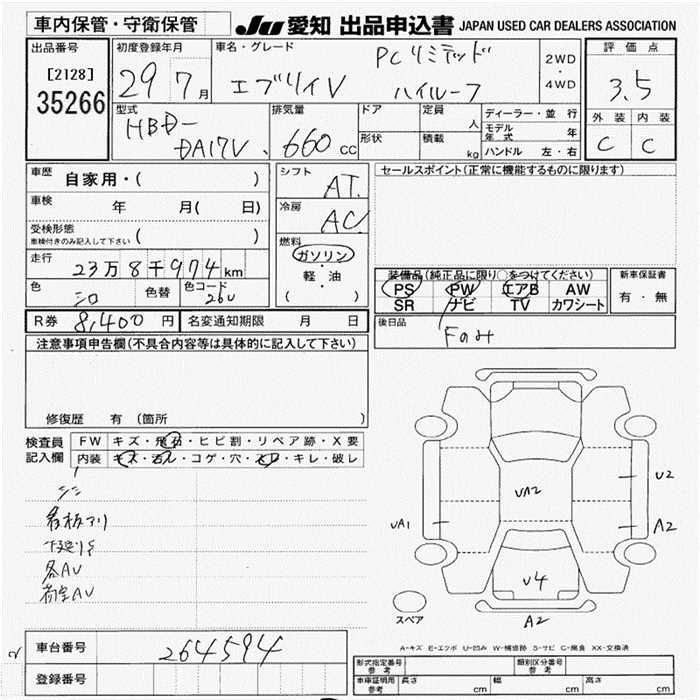 車内保管・守衛保管
JU 愛知 出品申込書 JAPAN USED CAR DEALERS ASSOCIATION
出品番号
[2128]
35266
初度登録年月
29 7 月
車名・グレード
PCリミテッド
エブリイV ハイルーフ
2WD
・
4WD
評価点
3.5
外装 内装
C C
型式
HBD-
DA17V
排気量
660 cc
ドア
形状
定員
人
積載
kg
ディーラー・並行
モデル年式 年
ハンドル 左・右
車歴
自家用・( )
車検 年 月( 日)
受検形態
車検付きのみ記入して下さい ( )
走行
23万8千974 km
色 シロ 色替 色コード 26U
シフト
AT
冷房
AC
燃料
ガソリン
・
軽・油
( )
セールスポイント(正常に機能するものに限ります)
装備品(純正品に限り○をつけてください)
PS PW エアB AW
SR ナビ TV カワシート
新車保証書
有・無
R券 8,400 円 名変通知期限 月 日
後日品
Fのみ
注意事項申告欄(不具合内容等は具体的に記入して下さい)
修復歴 有 (箇所 )
検査員記入欄
FW キズ・飛石・ヒビ割・リペア跡・X要
内装 キズ・汚れ・コゲ・穴・スレ・キレ・破レ
看板アリ
下廻りS
各AU
荷室AU
UA2
U2
UA1
A2
U4
スペア
A2
A-キズ E-エクボ U-凹み W-補修跡 S-サビ C-腐食 XX-交換済
車台番号 264594
登録番号
形式指定番号 参考
類別区分番号 参考
車庫証明用 参考 長さ cm 幅 cm 高さ cm